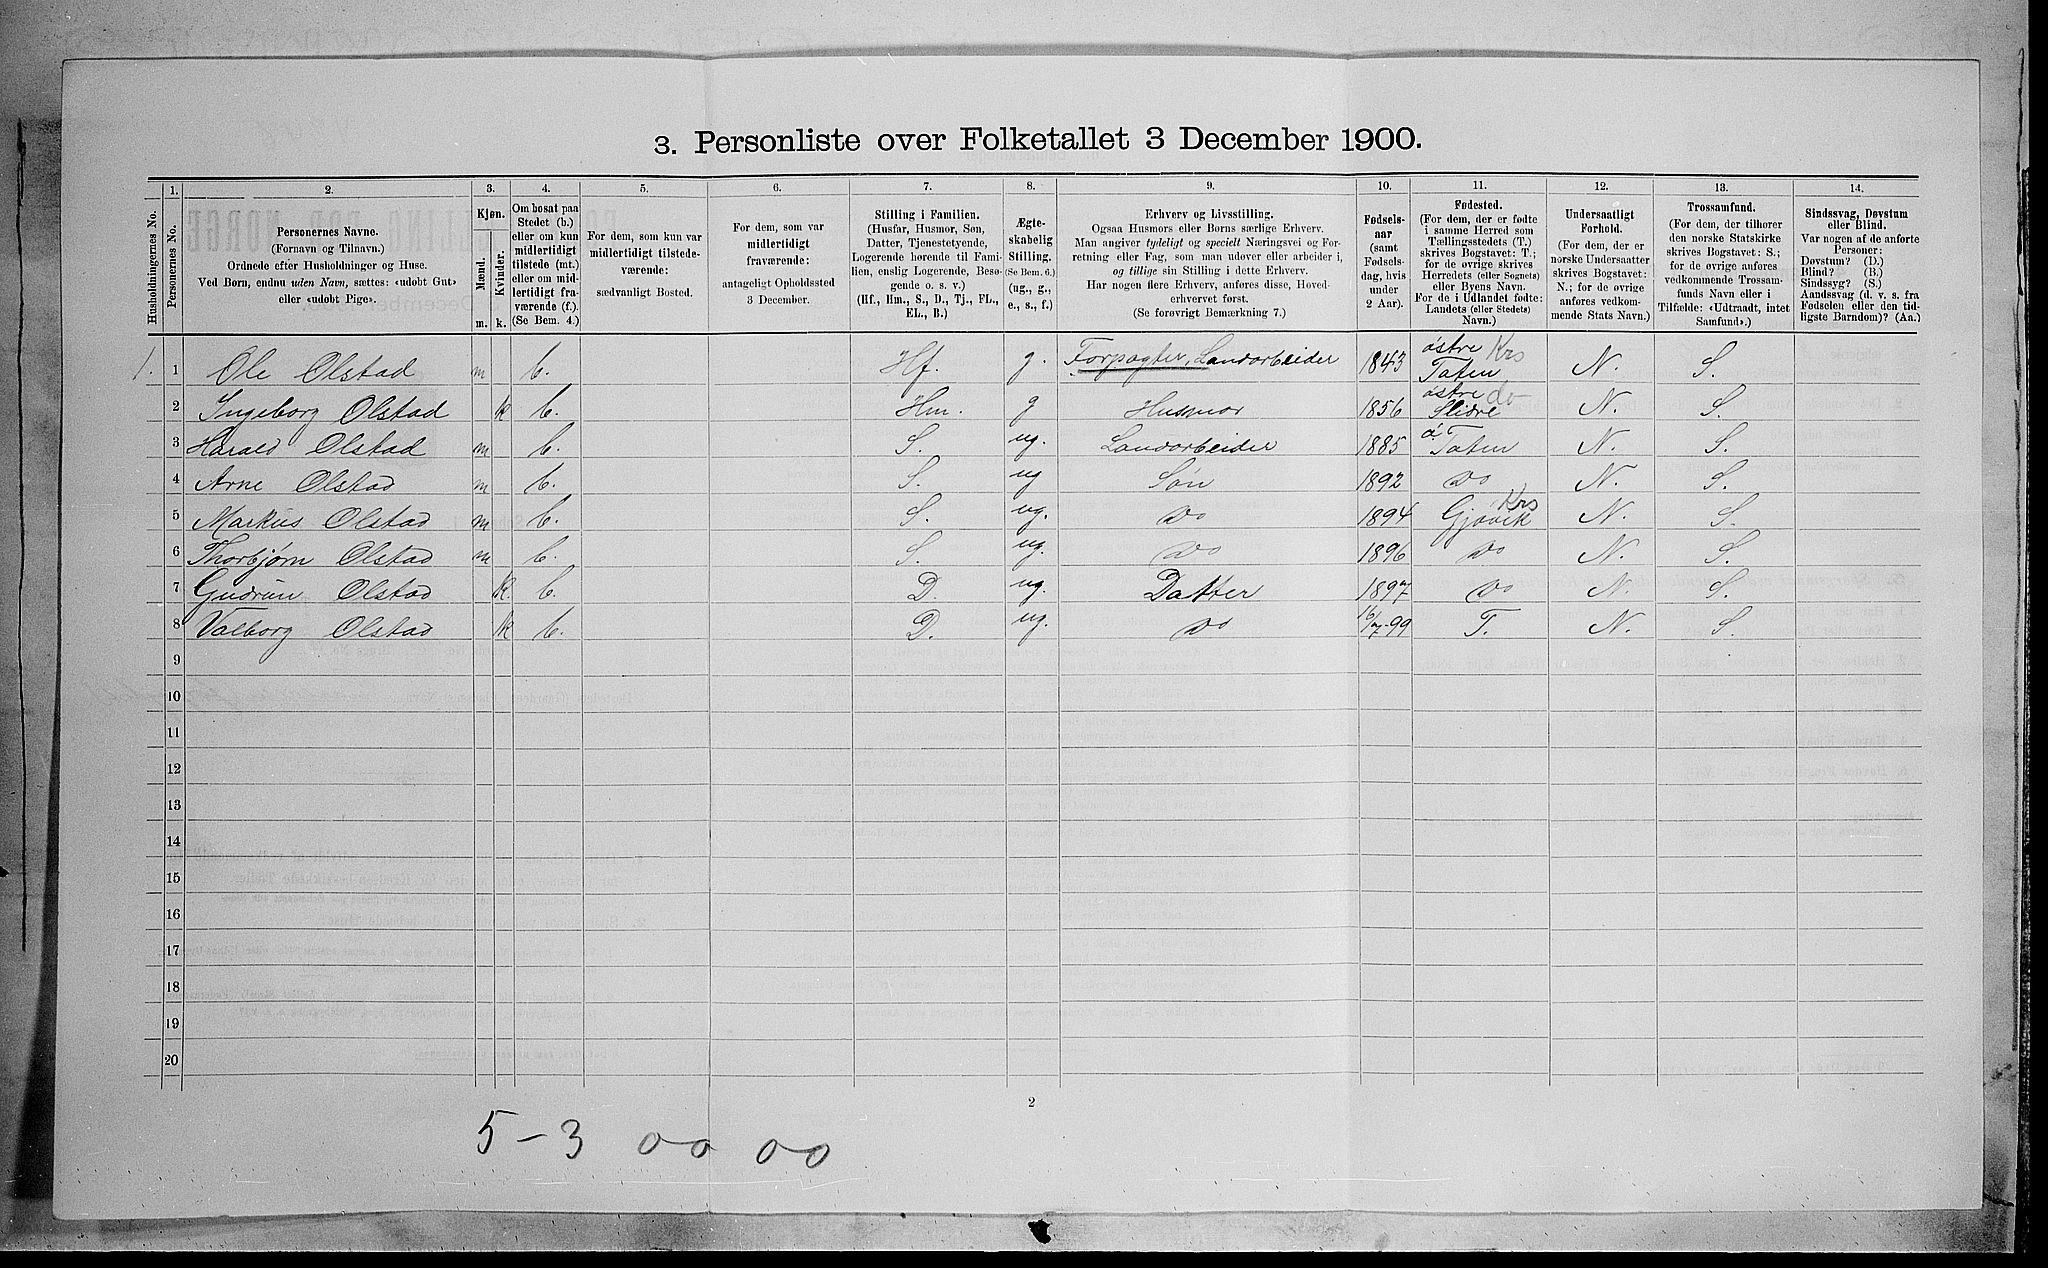 3. Personliste over Folketallet 3 December 1900.
1. 2. 3. 4. 5. 6. 7. 8. 9. 10. 11. 12. 13. 14.
Husholdningernes No.
Personernes No.
Personernes Navne.
(Fornavn og Tilnavn.)
Ordnede efter Husholdninger og Huse.
Ved Børn, endnu uden Navn, sættes: «udobt Gut»
eller «udobt Pige».
Kjøn.
Mænd.
Kvinder.
m. k.
Om bosat paa
Stedet (b.)
eller om kun
midlertidigt
tilstede (mt.)
eller om mid-
lertidigt fra-
værende (f.).
(Se Bem. 4.)
For dem, som kun var
midlertidigt tilstede-
værende:
sædvanligt Bosted.
For dem, som var
midlertidigt
fraværende:
antageligt Opholdssted
3 December.
Stilling i Familien.
(Husfar, Husmor, Søn,
Datter, Tjenestetyende,
Logerende hørende til Fami-
lien, enslig Logerende, Besø-
gende o. s. v.)
(Hf., Hm., S., D., Tj., FL.,
EL., B.)
Ægte-
skabelig
Stilling.
(Se Bem. 6.)
(ug., g.,
e., s., f.)
Erhverv og Livsstilling.
Ogsaa Husmors eller Børns særlige Erhverv.
Man angiver tydeligt og specielt Næringsvei og For-
retning eller Fag, som man udøver eller arbeider i,
og tillige sin Stilling i dette Erhverv.
Har nogen flere Erhverv, anføres disse, Hoved-
erhvervet først.
(Se forøvrigt Bemærkning 7.)
Fødsels-
aar
(samt
Fødsels-
dag, hvis
under
2 Aar).
Fødested.
(For dem, der er fødte
i samme Herred som
Tællingsstedets (T.)
skrives Bogstavet: T.;
for de øvrige skrives
Herredets (eller Sognets)
eller Byens Navn.
For de i Udlandet fødte:
Landets (eller Stedets)
Navn.)
Undersaatligt
Forhold.
(For dem, der er
norske Undersaatter
skrives Bogstavet:
N.; for de øvrige
anføres vedkom-
mende Stats Navn.)
Trossamfund.
(For dem, der tilhører
den norske Statskirke
skrives Bogstavet: S.;
for de øvrige anføres
vedkommende Trossam-
funds Navn eller i
Tilfælde: «Udtraadt, intet
Samfund».)
Sindssvag, Døvstum
eller Blind.
Var nogen af de anførte
Personer:
Døvstum? (D.)
Blind? (B.)
Sindssyg? (S.)
Aandssvag (d. v. s. fra
Fødselen eller den tid-
ligste Barndom)? (Aa.)
1. 1 Ole Olstad m b. Hf. g. Forpagter, Landarbeider 1843 østre Toten Krs N. S.
2 Ingeborg Olstad k b. Hm. g Husmor 1856 østre Slidre do N. S.
3 Harald Olstad m b. S. ug. Landarbeider 1885 ø. Toten N. S.
4 Arne Olstad m b. S. ug Søn 1892 Do N. S.
5 Markus Olstad m b. S. ug. Do 1894 Gjøvik Krs N. S.
6 Thorbjørn Olstad m b. S. ug. Do 1896 Do N. S.
7 Gudrun Olstad k. b. D. ug. Datter 1897 Do N. S.
8 Valborg Olstad k b. D. ug. Do 16/7-99 T. N. S.
9
10
11
12
13
14
15
16
17
18
19
20
2
5-3 00 00